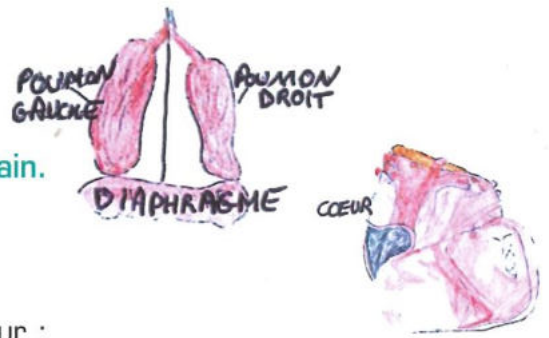 POUMON
GAUCHE
POUMON
DROIT
ain.
DIAPHRAGME
COEUR
ur :